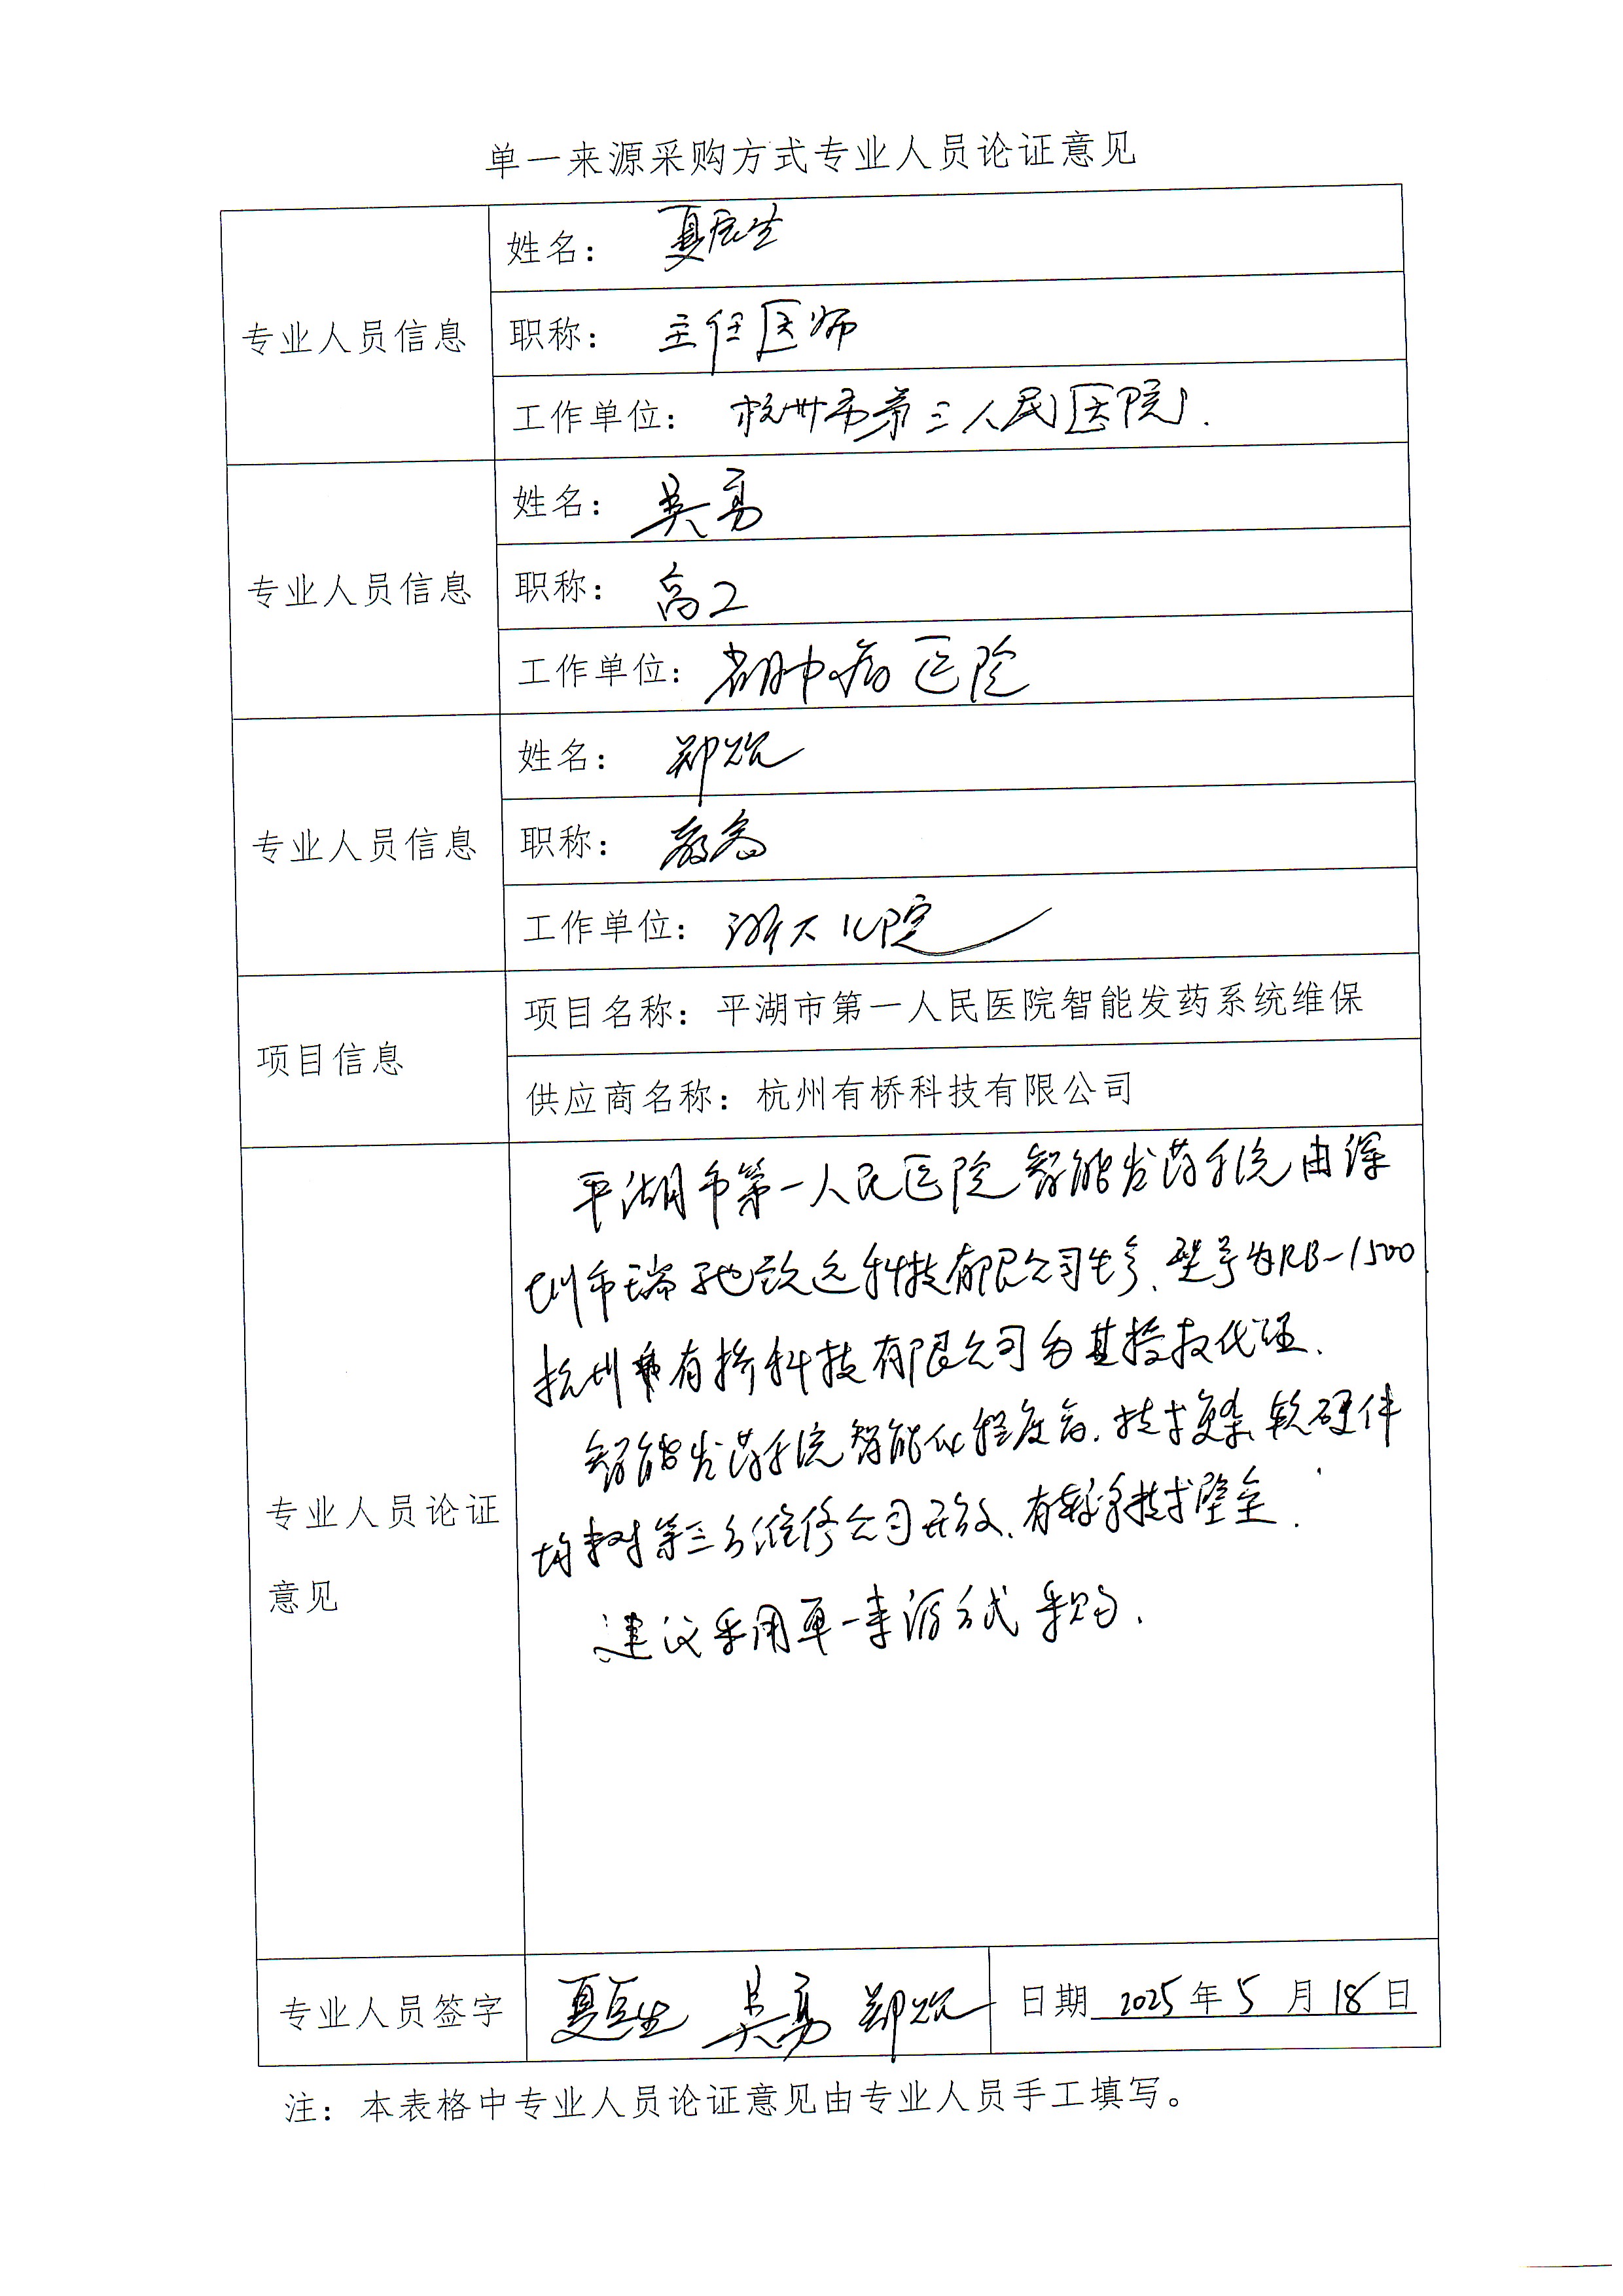 单一来源采购方式专业人员论证意见
专业人员信息
姓名：夏 生
职称：主任医师
工作单位：杭州市第三人民医院.
专业人员信息
姓名：吴勇
职称：高工
工作单位：省 病医院
专业人员信息
姓名：郑焜
职称：教高
工作单位：浙大儿院
项目信息
项目名称：平湖市第一人民医院智能发药系统维保
供应商名称：杭州有桥科技有限公司
专业人员论证
意见
平湖市第一人民医院智能发药系统由深
圳市瑞驰致远科技有限公司生产、型号为RB-1500
杭州 有桥科技有限公司为其授权代理、
智能发药系统智能化程度高、技术复杂、软硬件
均 第三方维修公司开放、有 技术壁垒.
建议采用单一来源方式采购.
专业人员签字
夏 生 吴勇 郑焜
日期 2025年5月18日
注：本表格中专业人员论证意见由专业人员手工填写。